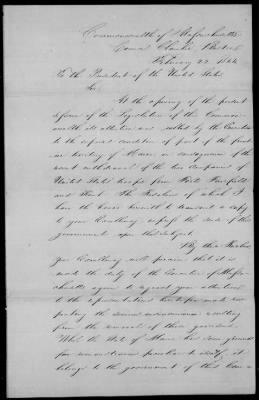 Commonwealth of Massachusetts
Council Chamber, Boston
February 22, 184
To the President of the United States
Sir,
At the opening of the present
session of the Legislature of this Common-
wealth its attention was called by the Executive
to the exposed condition of part of the front-
ier territory of Maine in consequence of the
recent withdrawal of the two companies of
United States troops from Forts Fairfield
and Kent. The Resolves of which I
have the honor herewith to transmit a copy
to your Excellency express the sense of this
government upon that subject.
By this Resolve
Your Excellency will perceive that it is
made the duty of the Executive of Massa-
chusetts again to request your attention
to the representations heretofore made res-
pecting the serious inconveniences resulting
from the removal of these garrisons.
While the State of Maine has
for
belongs to the government of this